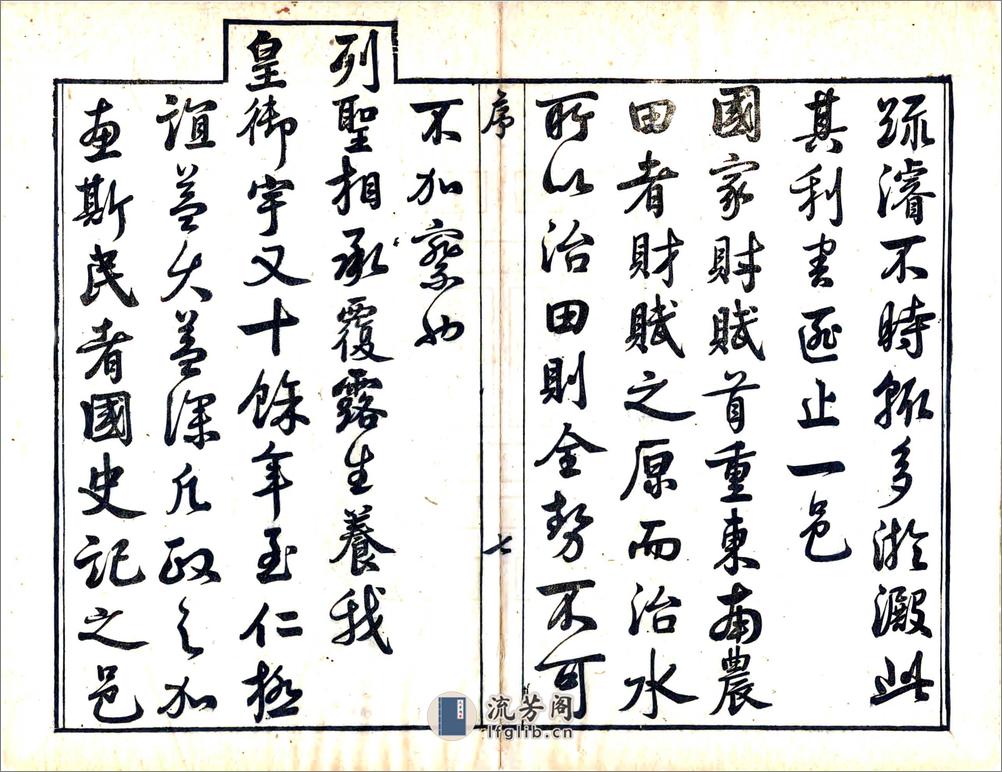 疏濬不時輒多淤澱此
其利害遂止一邑
國家財賦首重東南農
田者財賦之原而治水
所以治田則全勢不可
序
七
不加察也
列聖相承覆露生養我
皇御宇又十餘年至仁極
誼益久益深凡政之加
惠斯民者國史記之邑
流芳阁
lfglib.cn